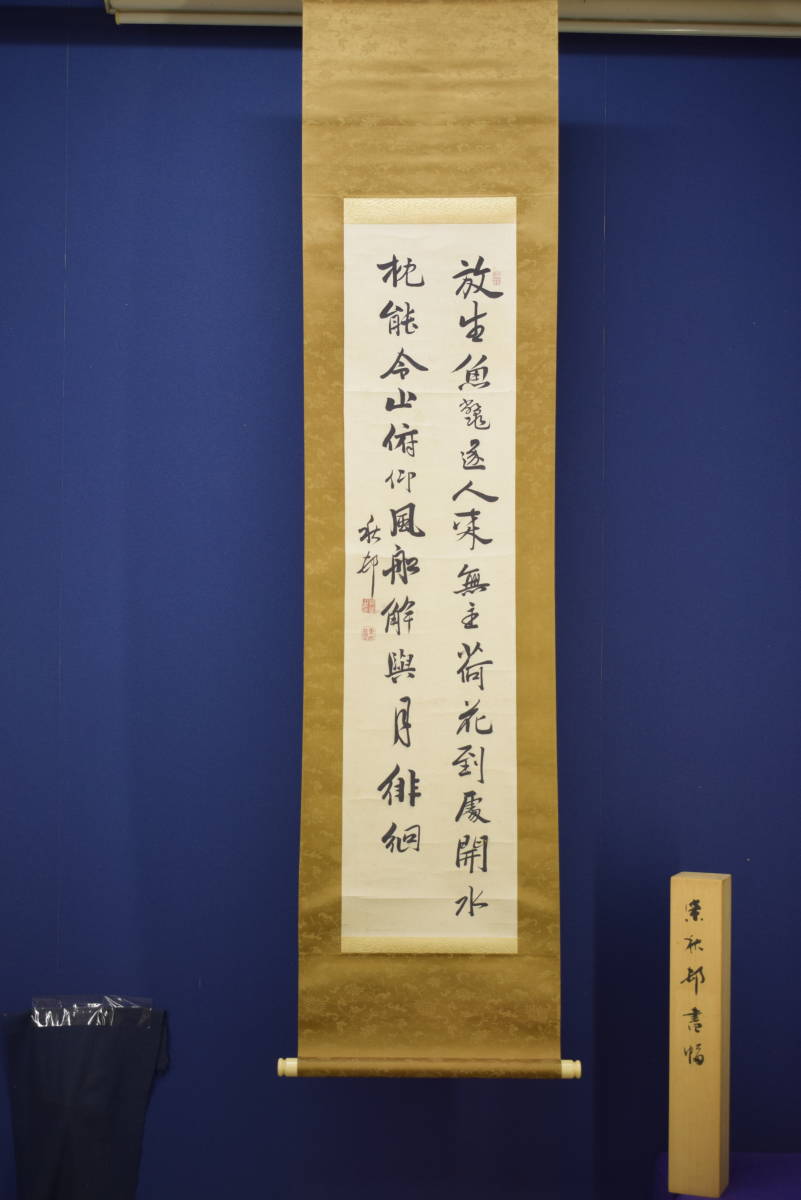 放生魚鼈逐人來無主荷花到處開水
枕能令山俯仰風船解與月徘徊
秋邨
柴秋邨書幅